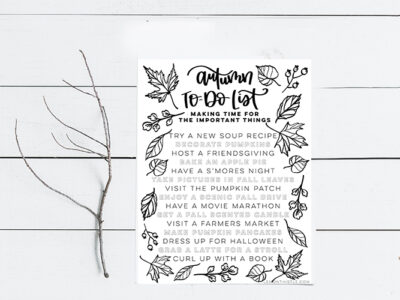 autumn
TO-DO LIST
MAKING TIME FOR
THE IMPORTANT THINGS
TRY A NEW SOUP RECIPE
DECORATE PUMPKINS
HOST A FRIENDSGIVING
BAKE AN APPLE PIE
HAVE A S'MORES NIGHT
TAKE PICTURES IN FALL LEAVES
VISIT THE PUMPKIN PATCH
ENJOY A SCENIC FALL DRIVE
HAVE A MOVIE MARATHON
GET A FALL SCENTED CANDLE
VISIT A FARMERS MARKET
MAKE PUMPKIN PANCAKES
DRESS UP FOR HALLOWEEN
GRAB A LATTE FOR A STROLL
CURL UP WITH A BOOK